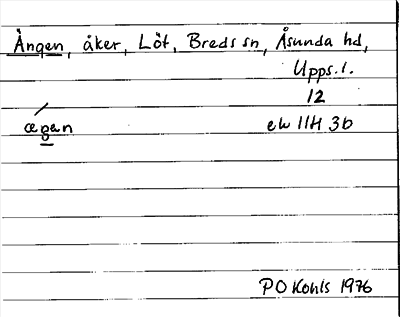 Ängen, åker, Löt, Breds sn, Åsunda hd,
Upps. l.
12
œgan ek 11H 3b
PO Kohls 1976